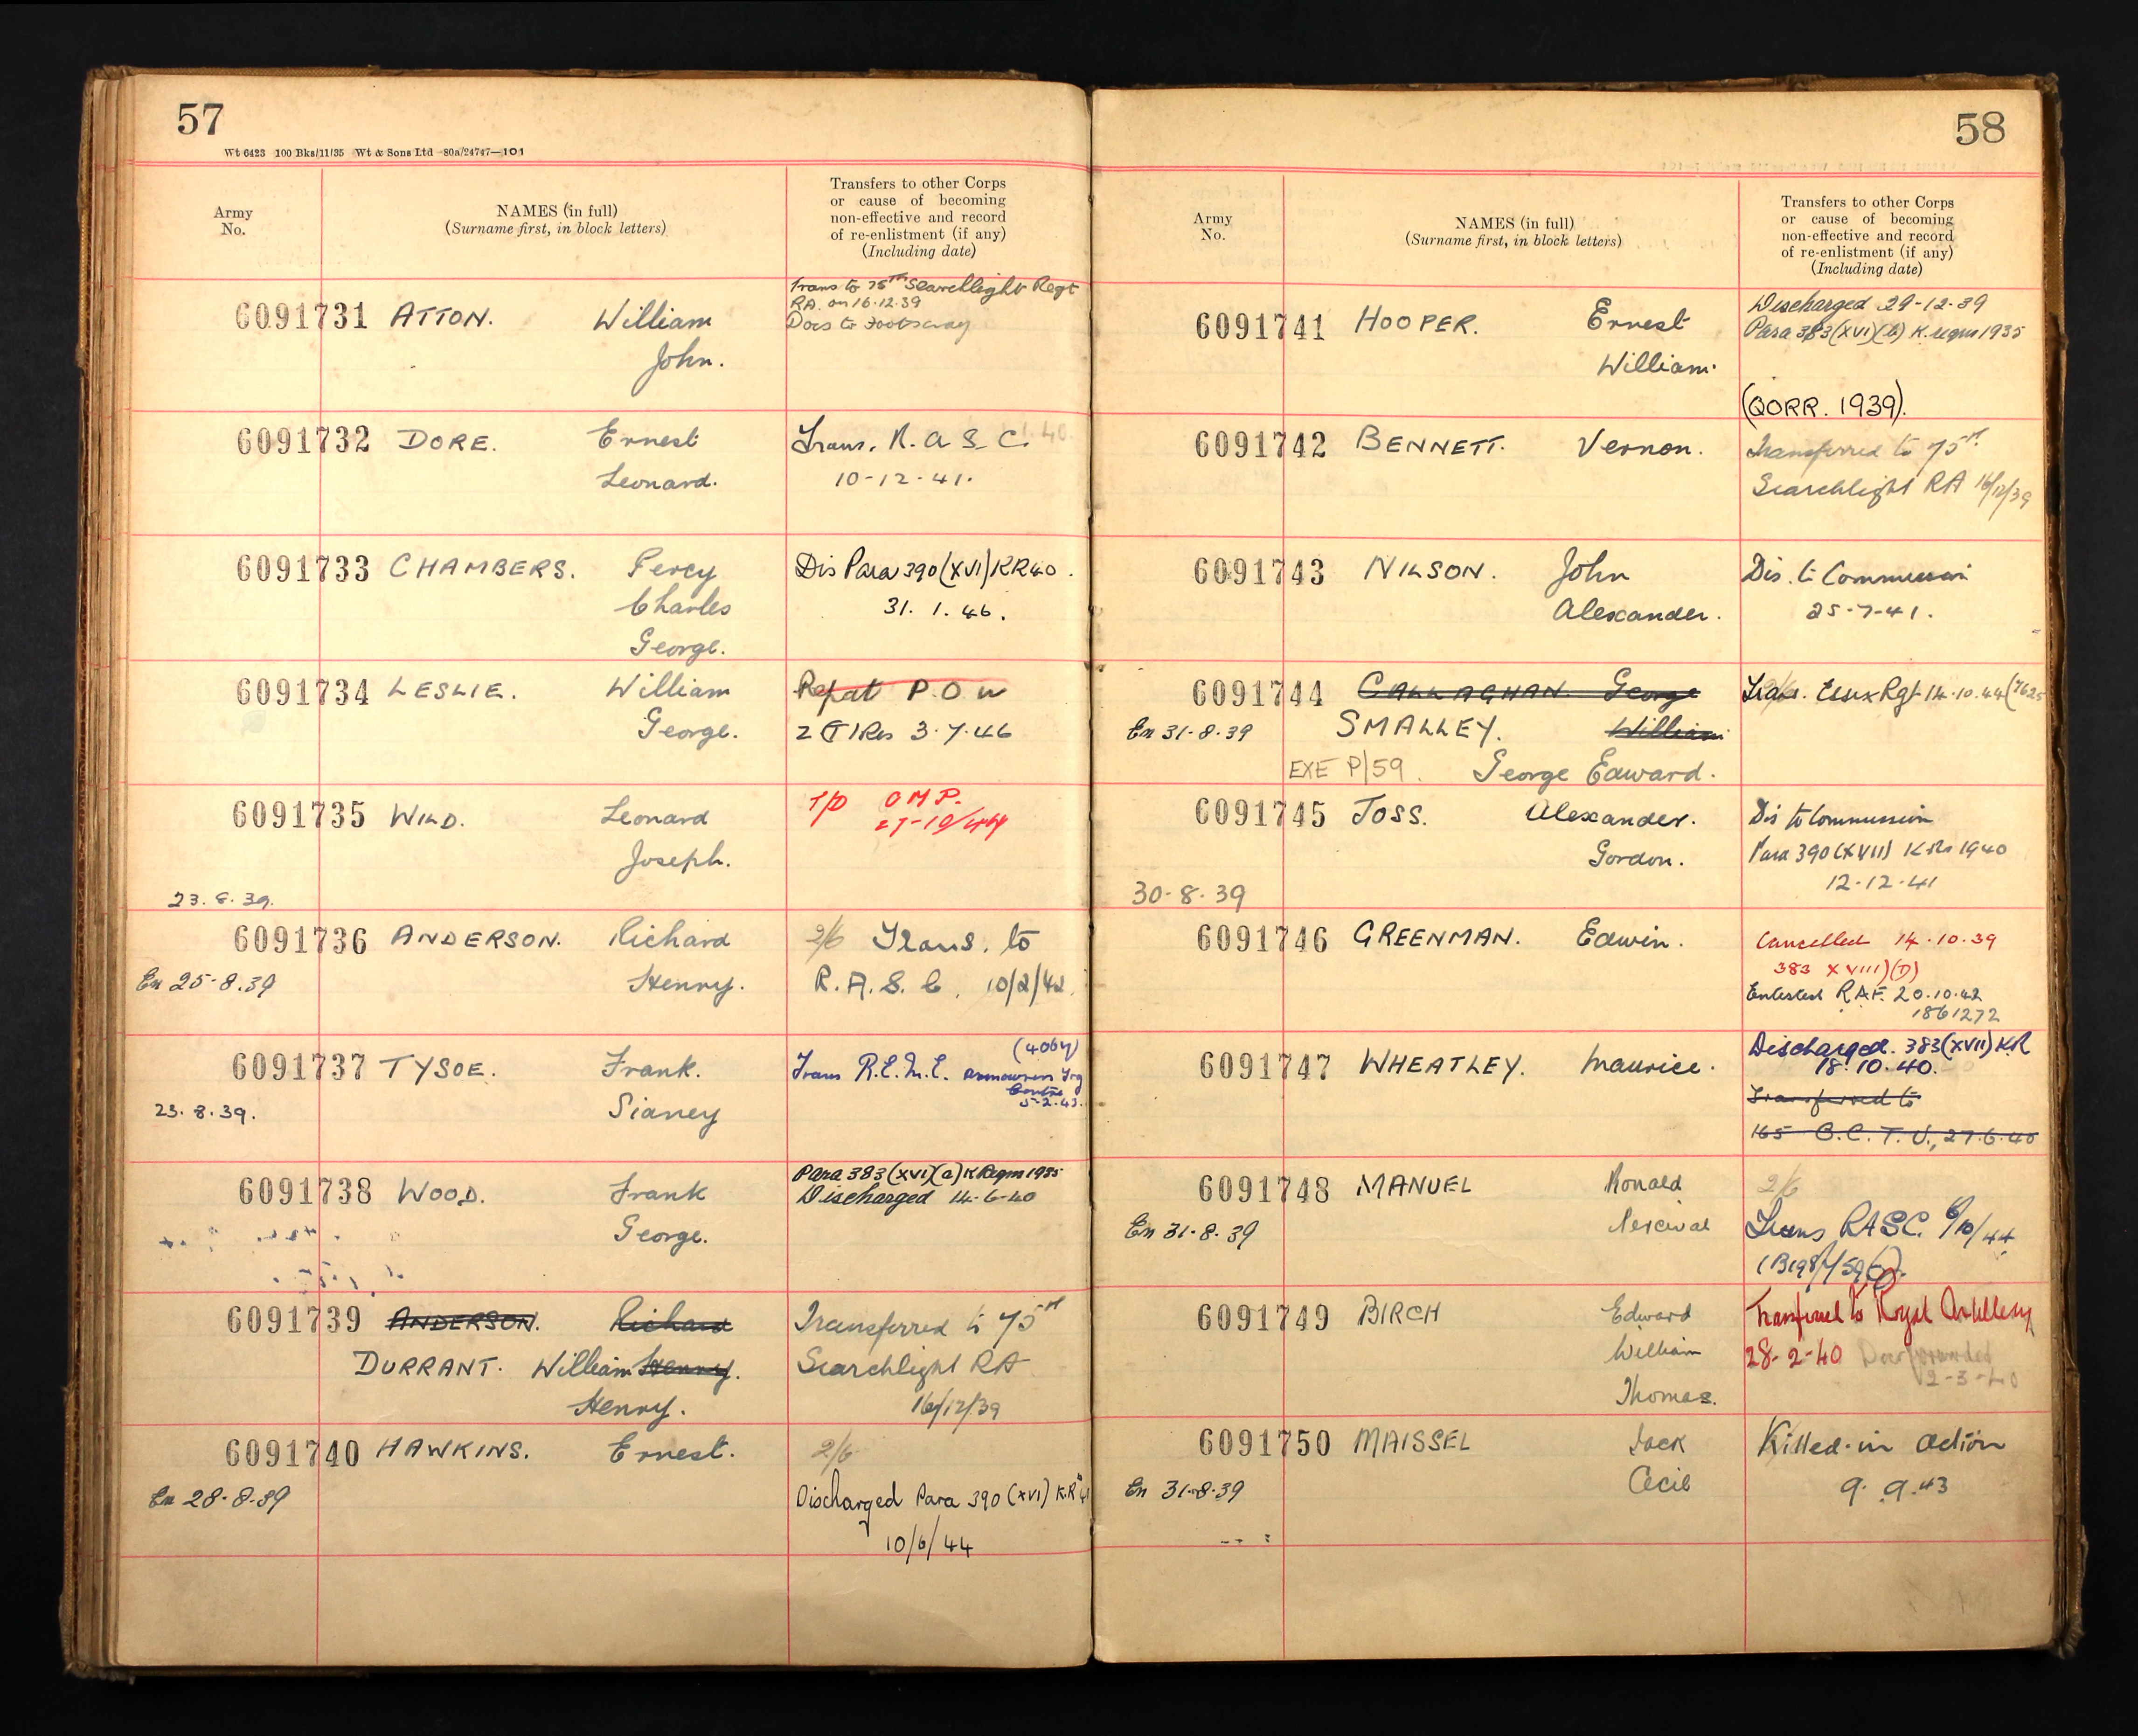 57
Wt 6423 100 Bks/11/35 Wt & Sons Ltd 80a/24747—101
Army
No.
NAMES (in full)
(Surname first, in block letters)
Transfers to other Corps
or cause of becoming
non-effective and record
of re-enlistment (if any)
(Including date)
6091731 ATTON. William
John.
Trans to 75th Searchlight Regt
RA. on 16.12.39
Docs to Footscray
6091732 DORE. Ernest
Leonard.
Trans. R.A.S.C.
10-12-41.
6091733 CHAMBERS. Percy
Charles
George.
Dis Para 390 (XVI) KR40.
31.1.46.
6091734 LESLIE. William
George.
Repat P.O.W
Z (T) Res 3.7.46
6091735 WILD. Leonard
Joseph.
T/D OMP.
27-10/44
23.8.39.
6091736 ANDERSON. Richard
Henry.
En 25-8.39
2/6 Trans. to
R.A.S.C. 10/2/42.
6091737 TYSOE. Frank.
Sidney
23.8.39.
(4064)
Trans R.E.M.E. Armourers Trg
Centre
5-2.43.
6091738 WOOD. Frank
George.
Para 383 (XVI)(a) K Regns 1935
Discharged 14-6-40
6091739 ANDERSON. Richard
DURRANT. William Henry.
Henry.
Transferred to 75th
Searchlight RA
16/12/39
6091740 HAWKINS. Ernest.
En 28-8-39
2/6
Discharged Para 390 (XVI) K.R.
10/6/44
58
Army
No.
NAMES (in full)
(Surname first, in block letters)
Transfers to other Corps
or cause of becoming
non-effective and record
of re-enlistment (if any)
(Including date)
6091741 HOOPER. Ernest
William.
Discharged 29-12-39
Para 383 (XVI)(b) K. Regns 1935
(QORR. 1939).
6091742 BENNETT. Vernon.
Transferred to 75th
Searchlight RA 16/12/39
6091743 NILSON. John
Alexander.
Dis. to Commission
25-7-41.
6091744 CALLAGHAN. George
En 31-8.39 SMALLEY. William
EXE P/59. George Edward.
Trans. Essex Rgt 14.10.44
6091745 JOSS. Alexander.
Gordon.
30-8.39
Dis to Commission
Para 390 (XVII) KRs 1940
12-12-41
6091746 GREENMAN. Edwin.
Cancelled 14.10.39
383 XVIII)(D)
Enlisted R.A.F. 20.10.42
1861272
6091747 WHEATLEY. Maurice.
Discharged. 383 (XVII) KR
18.10.40.
Transferred to
165 O.C.T.U., 27.6.40
6091748 MANUEL Ronald
Percival
En 31-8.39
2/6
Trans RASC. 6/10/44
6091749 BIRCH Edward
William
Thomas.
Transferred to Royal Artillery
28-2-40 Docs forwarded
2-3-40
6091750 MAISSEL Jack
Cecil
En 31-8-39
Killed in action
9.9.43